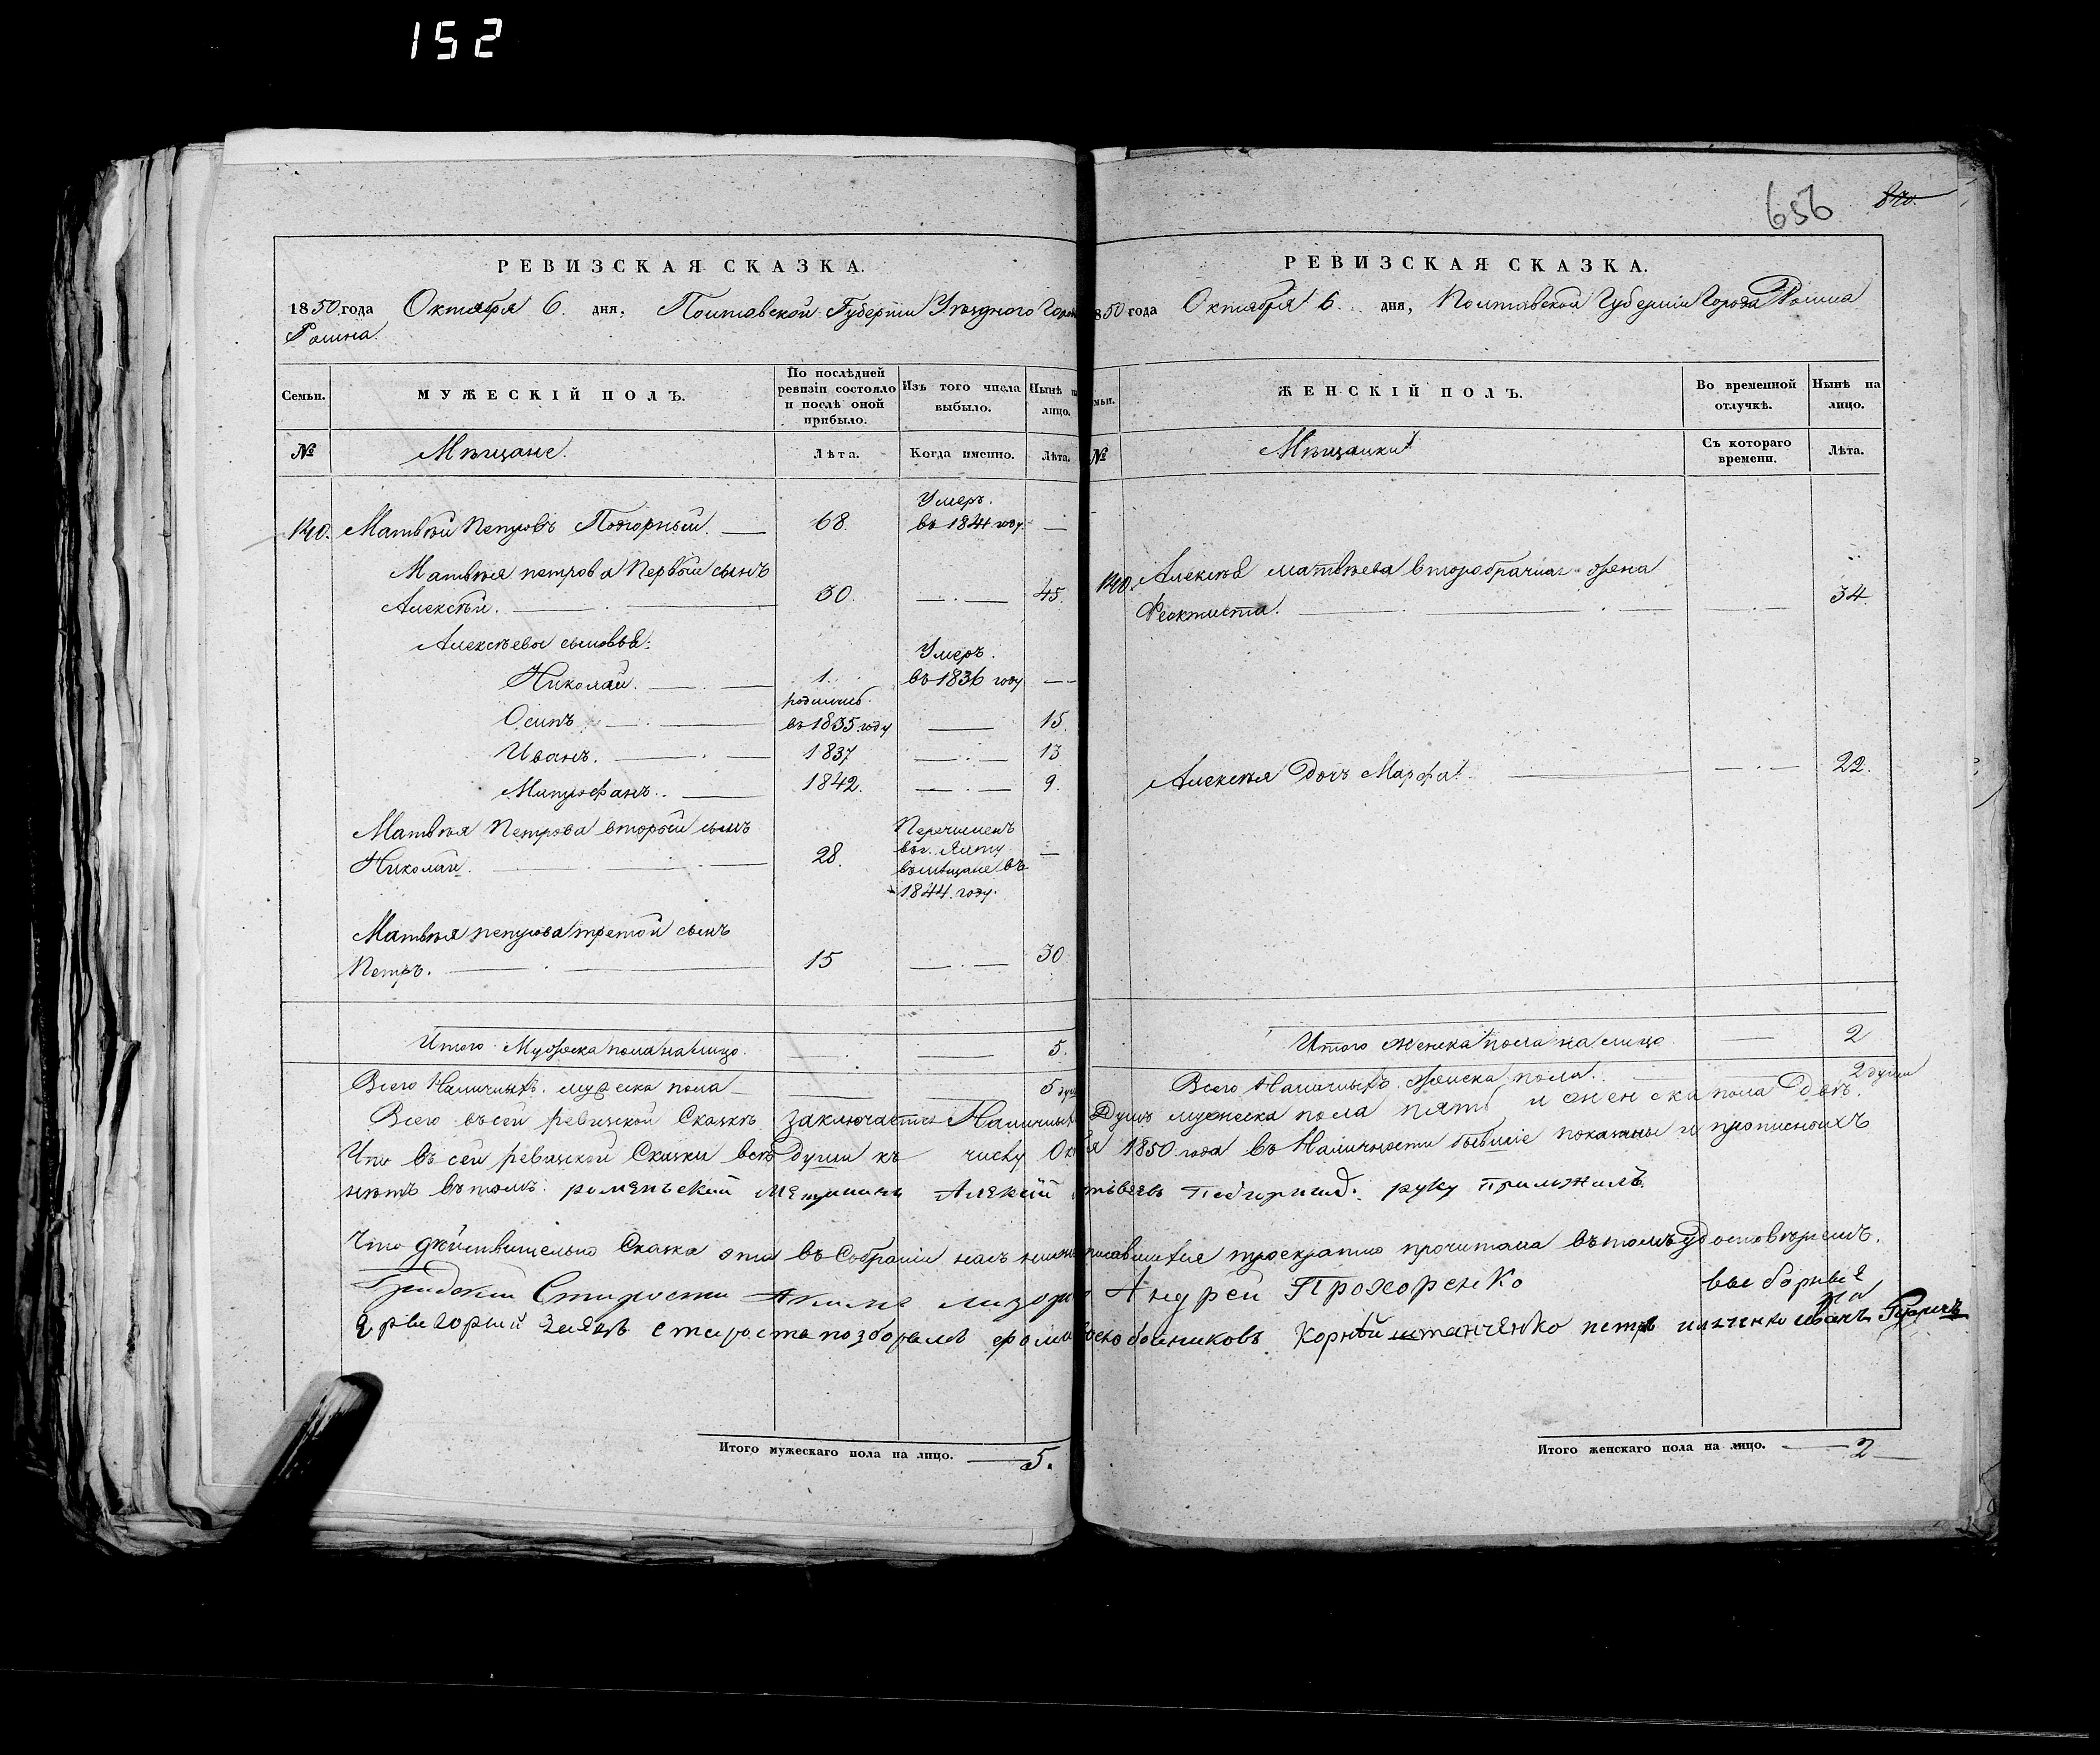 152
656 870.
РЕВИЗСКАЯ СКАЗКА.
1850 года Октября 6. дня, Полтавской Губернии Уѣзднаго Города
Ромна.
Семьи.
МУЖЕСКІЙ ПОЛЪ.
По послѣдней ревизіи состояло и послѣ оной прибыло.
Изъ того числа выбыло.
Нынѣ на лицо.
№
Мѣщане.
Лѣта.
Когда именно.
Лѣта.
Умеръ.
140. Матвѣй Петровъ Подгорный. — 68. въ 1841 году. —
Матвѣя петрова Первой сынъ
Алексѣй. — 30. — 45.
Алексѣевы сыновья:
Умеръ.
Николай. — 1. въ 1836 году —
родился
Осипъ. — въ 1835 году — 15.
Иванъ. — 1837 — 13
Митрофанъ. — 1842. — 9.
Матвѣя Петрова второй сынъ
Николай. — 28. —
Перечисленъ
въ г. Ялту
въ мѣщане въ
1844 году.
Матвѣя петрова третой сынъ
Петръ. — 15 — 30
Итого Мужеска пола на лицо. — 5.
Всего Наличныхъ мужеска пола — 5 душ
РЕВИЗСКАЯ СКАЗКА.
1850 года Октября 6. дня, Полтавской Губернии Города Ромна
Семьи.
ЖЕНСКІЙ ПОЛЪ.
Во временной отлучкѣ.
Нынѣ на лицо.
№
Мѣщанки
Съ котораго времени.
Лѣта.
140. Алексѣя матвѣева второбрачная жена
Феоктиста. — 34.
Алексѣя Дочь Марфа. — 22.
Итого женска пола на лицо — 2
Всего Наличныхъ женска пола. — 2 души
Всего въ сей ревизской Сказкѣ заключается Наличныхъ Душъ мужеска пола пять и женска пола Двѣ.
Что въ сей ревизской Сказки всѣ души къ числу Октября 1850 года въ Наличности бывшіе показаны и прописныхъ
нѣтъ въ томъ роменьский Мещанинъ Алексѣй Матвѣевъ Подгорный руку приложилъ.
Что дѣйствительно Сказка эта въ Собраніи насъ нижеподписавшихся троекратно прочитана въ томъ удостовѣряемъ.
Градский Староста Андрей Прохоренко выборные
староста Корнѣй петръ иванъ
Итого мужескаго пола на лицо. — 5.
Итого женскаго пола на лицо. — 2 —